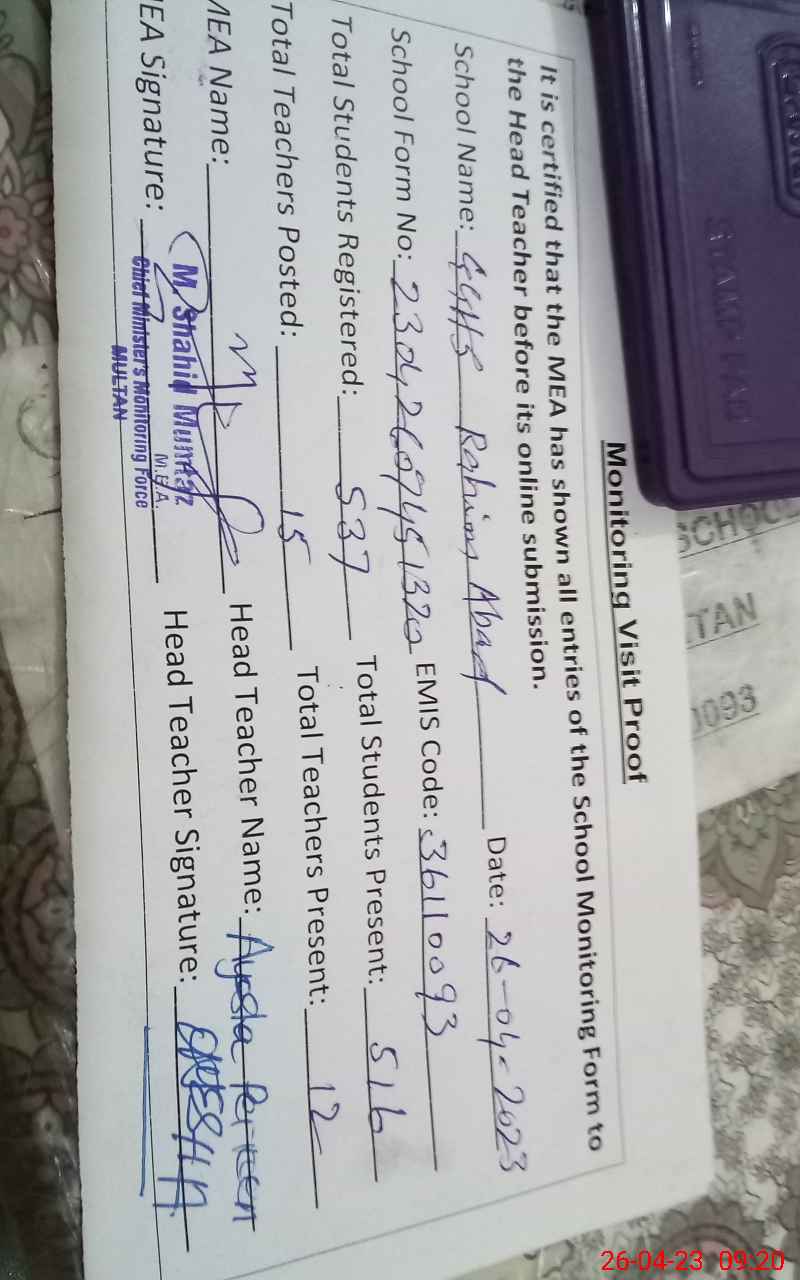 STAMP PAD
SCHOOL
TAN
0093
Monitoring Visit Proof
It is certified that the MEA has shown all entries of the School Monitoring Form to
the Head Teacher before its online submission.
School Name: GGHS Rahim Abad Date: 26-04-2023
School Form No: 23042609451320 EMIS Code: 36110093
Total Students Registered: 537 Total Students Present: 516
Total Teachers Posted: 15 Total Teachers Present: 12
MEA Name: Head Teacher Name: Ayesha Perveen
MEA Signature: Head Teacher Signature:
M. Shahid Mumtaz
M.E.A.
Chief Minister's Monitoring Force
MULTAN
26-04-23 09:20